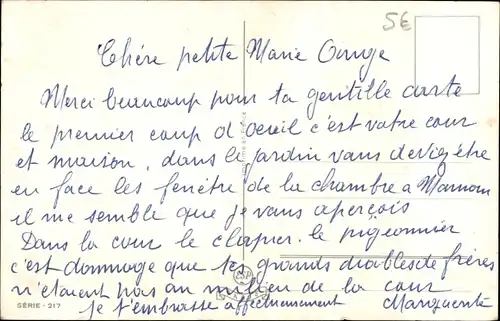 5€
Chére petite Marie Ange
Merci beaucoup pour ta gentille carte
le premier coup d oeuil c'est vatre cour
et maison, dans le jardin vous devez être
en face les fenêtre de la chambre a Maman
il me semble que je vous aperçois
Dans la cour le clapier. le pigeonnier
c'est dommage que tes grands diables de frères
n'étaient pas au milieu de la cour
je t'embrasse affectueusement Marguerite
SÉRIE - 217